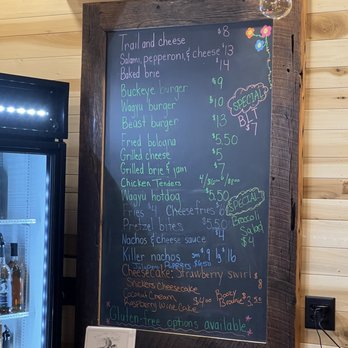 Trail and cheese $8
Salami, pepperoni, & cheese $13
Baked brie $14
Buckeye burger $9
Wagyu burger $10
Beast burger $13
Fried bologna $5.50
Grilled cheese $5
Grilled brie & jam $7
Chicken Tenders
Wagyu hotdog $5.50
Fries $4 Cheese fries $6
Pretzel bites $5.50
Nachos & cheese sauce $4
Killer nachos sm $9 lg $16
Jalapeno Poppers $4.50
Cheesecake: Strawberry swirl $8
Snickers Cheesecake
Coconut Cream
Raspberry Wine Cake
Gluten-free options available
SPECIAL
BLT
$7
SPECIAL
Broccoli
Salad
$4